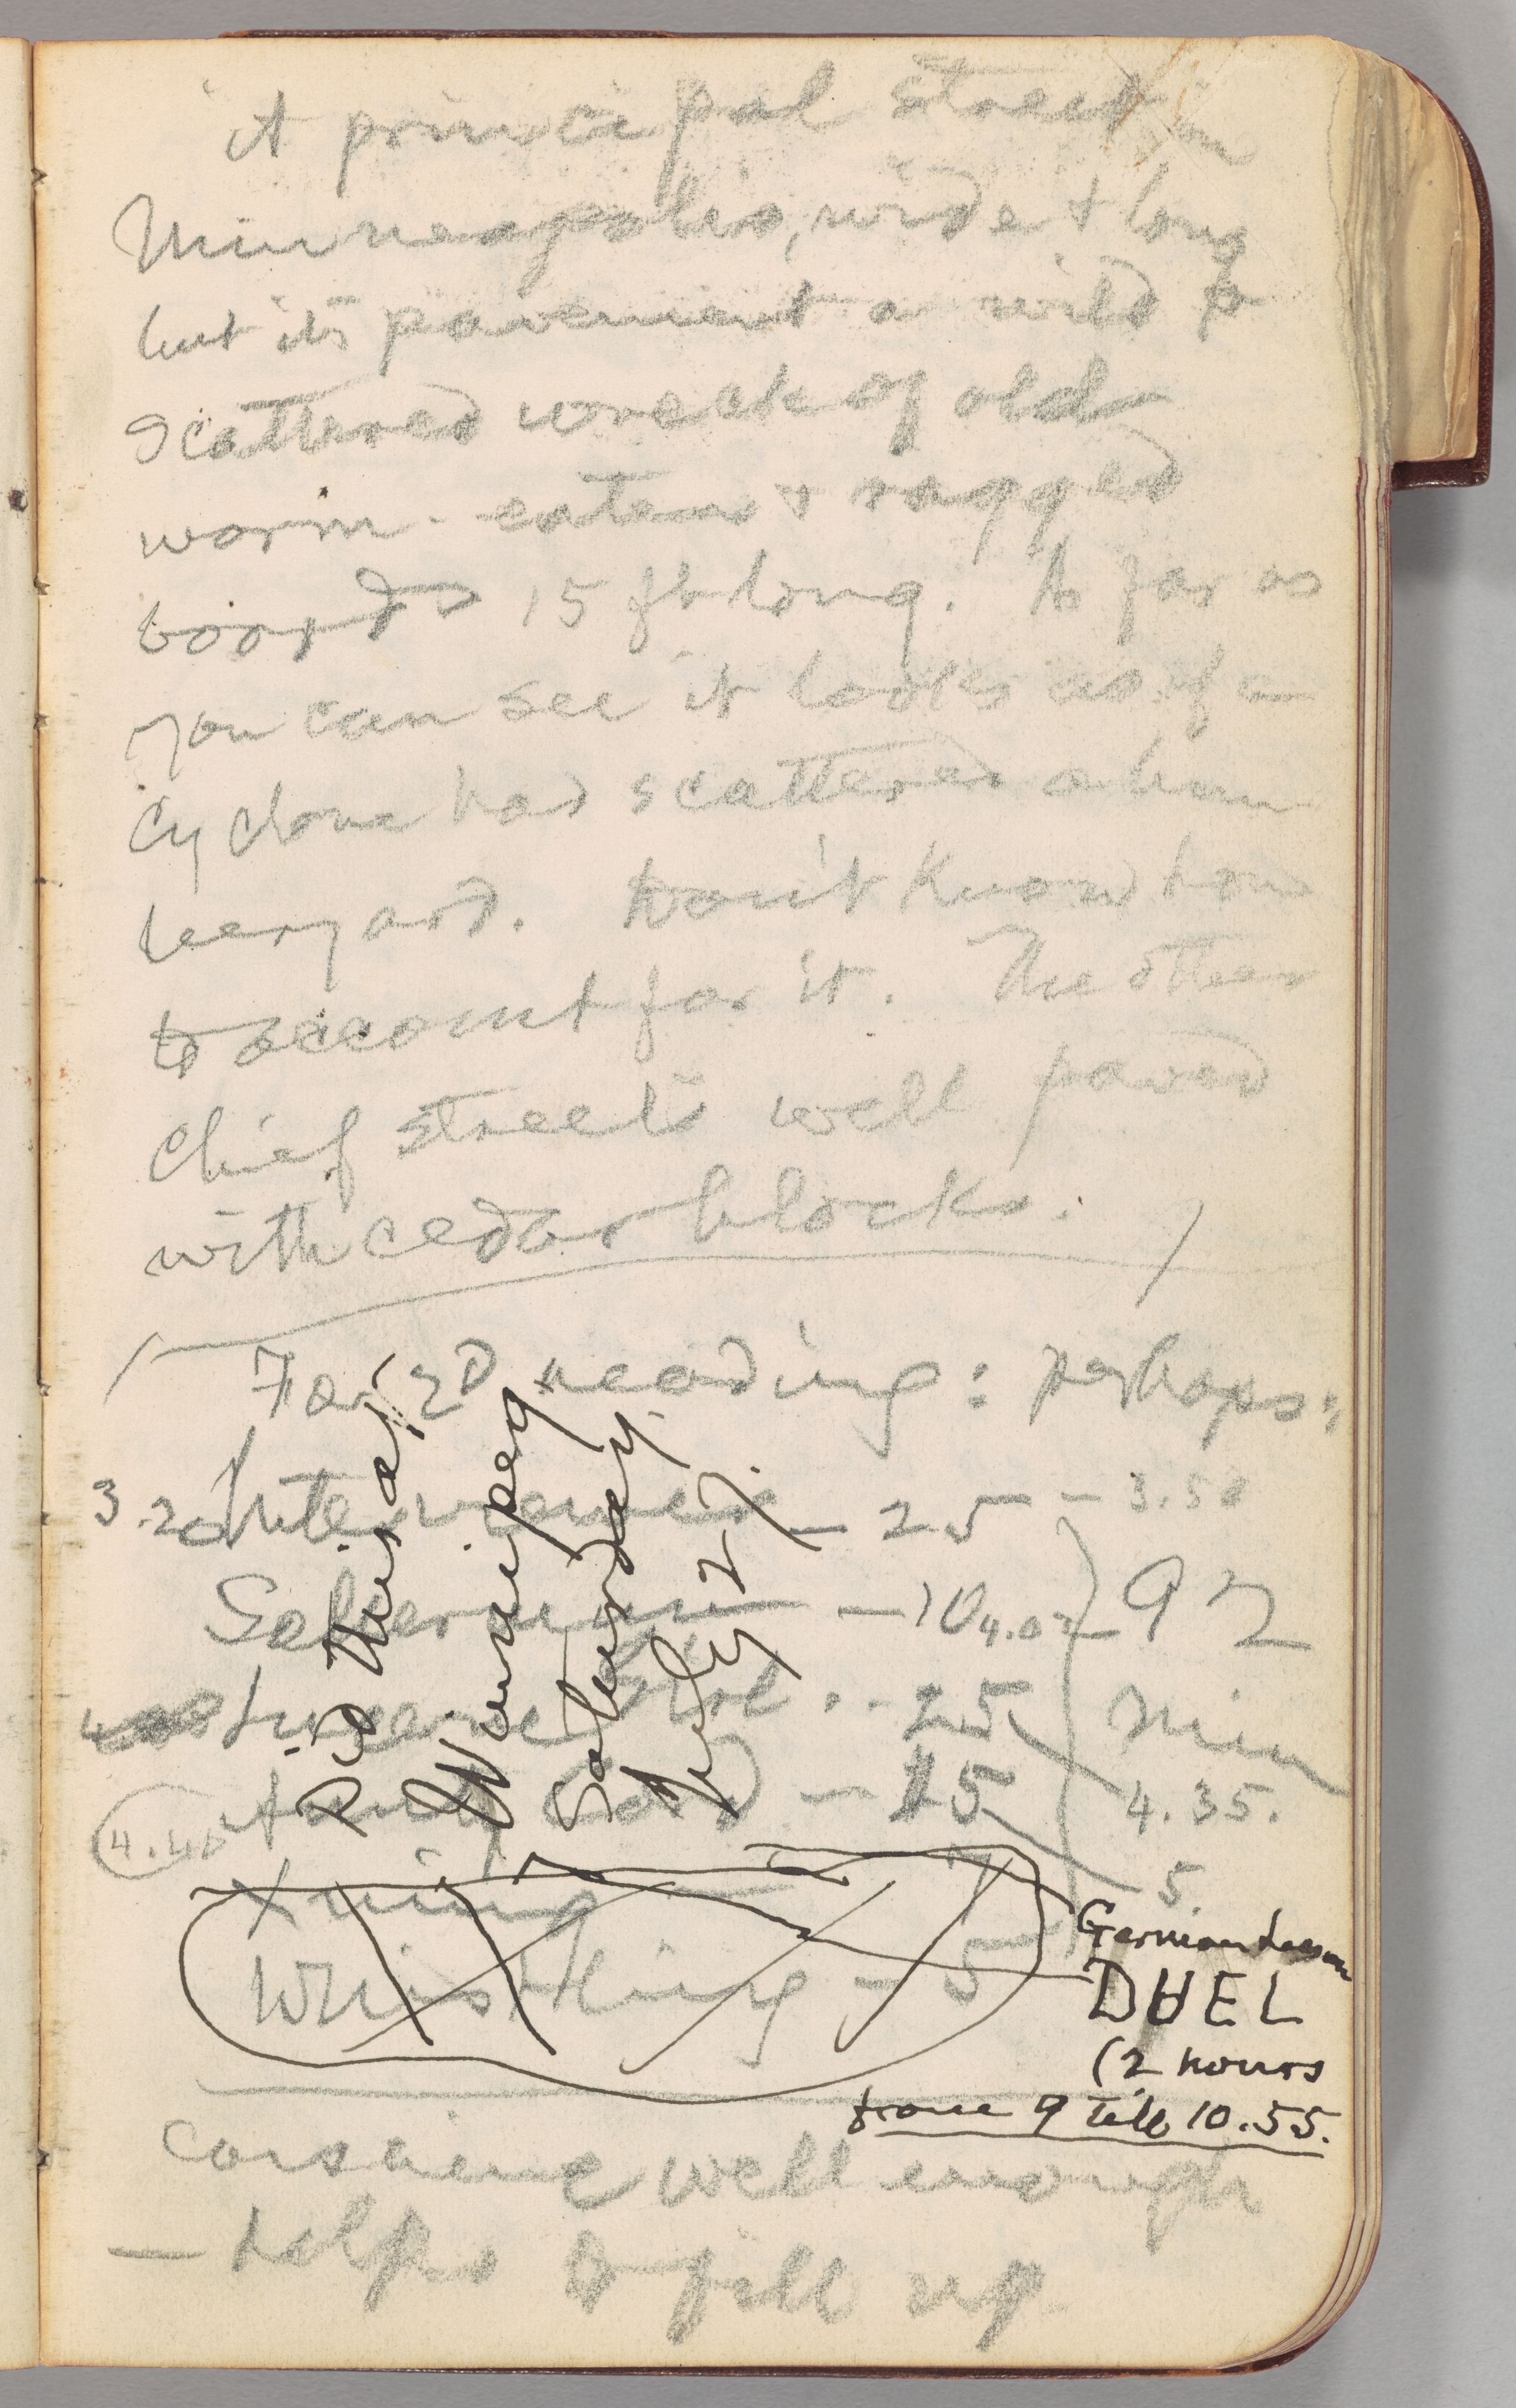 A principal street in
Minneapolis, wide & long
but its pavement a wild &
scattered wreck of old
worm-eaten & ragged
boards 15 ft long. As far as
you can see it looks as if a
cyclone had scattered a lum
beryard. Don't know how
to account for it. The other
chief streets well paved
with cedar blocks.
For 2D reading: perhaps:
3.20 Interviewer — 25 — 3.50
— 10 4.02 — 92
Lucerne Girl .. 25 min
4.40 — 15 4.35.
Xning 7 5.
Whistling — 5
German Lesson
DUEL
(2 hours
from 9 till 10.55.
2D
Winnipeg
Saturday
July 27.
well enough
— helps to fill up